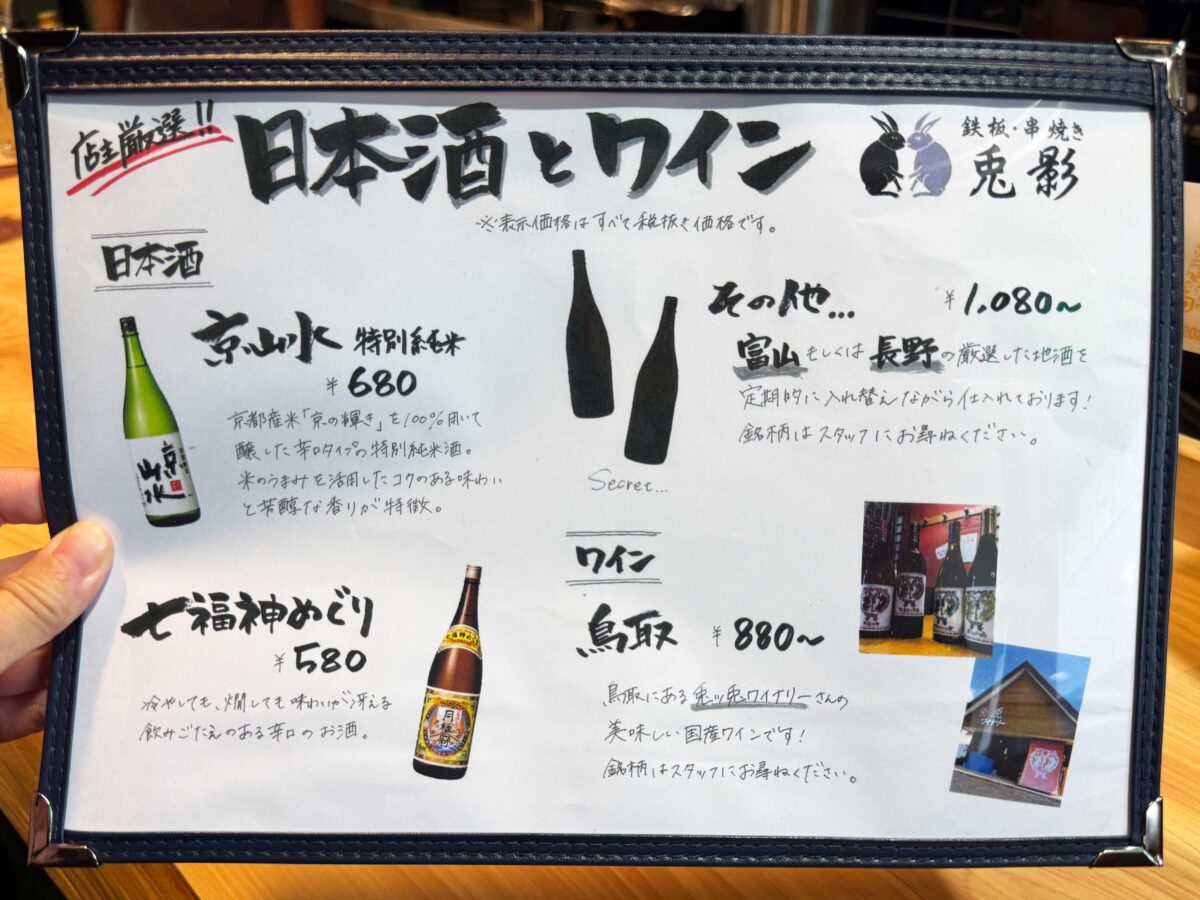 店主厳選!!
日本酒とワイン
鉄板・串焼き
兎影
※表示価格はすべて税抜き価格です。
日本酒
京山水 特別純米
¥680
京都産米「京の輝き」を100%用いて
醸した辛口タイプの特別純米酒。
米のうまみを活用したコクのある味わい
と芳醇な香りが特徴。
京山水
七福神めぐり
¥580
冷やしても、燗しても味わいが冴える
飲みごたえのある辛口のお酒。
七福神めぐり
月桂冠
その他… ¥1,080~
富山もしくは長野の厳選した地酒を
定期的に入れ替えながら仕入れております!
銘柄はスタッフにお尋ねください。
Secret...
ワイン
鳥取 ¥880~
鳥取にある兎ッ兎ワイナリーさんの
美味しい国産ワインです!
銘柄はスタッフにお尋ねください。
ワイナリー